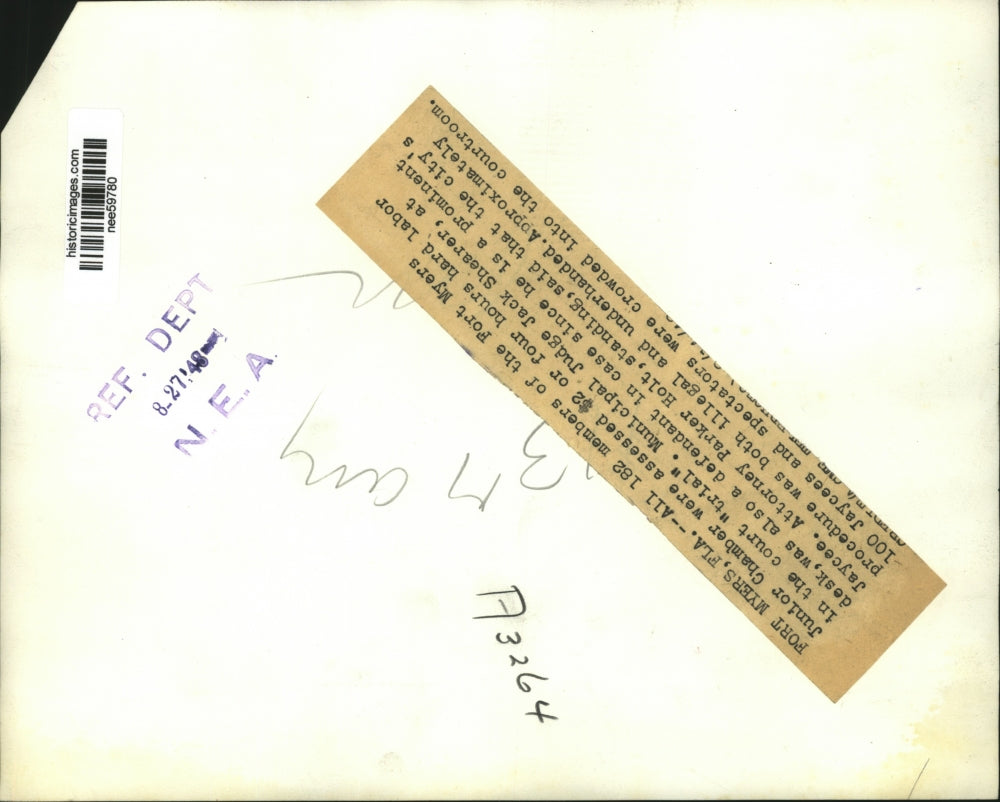 historicimages.com
nee59780
REF. DEPT
8-27'48
N. E. A.
A3264
FORT MYERS, FLA.--All 182 members of the Fort Myers
Junior Chamber were assessed $2 or four hours hard labor
in the court "trial". Municipal Judge Jack Shearer, at
desk,was also a defendant in case since he is a prominent
Jaycee. Attorney Parker Holt,standing,said that the city's
procedure was both illegal and underhanded.Approximately
100 Jaycees and spectators were crowded into the courtroom.